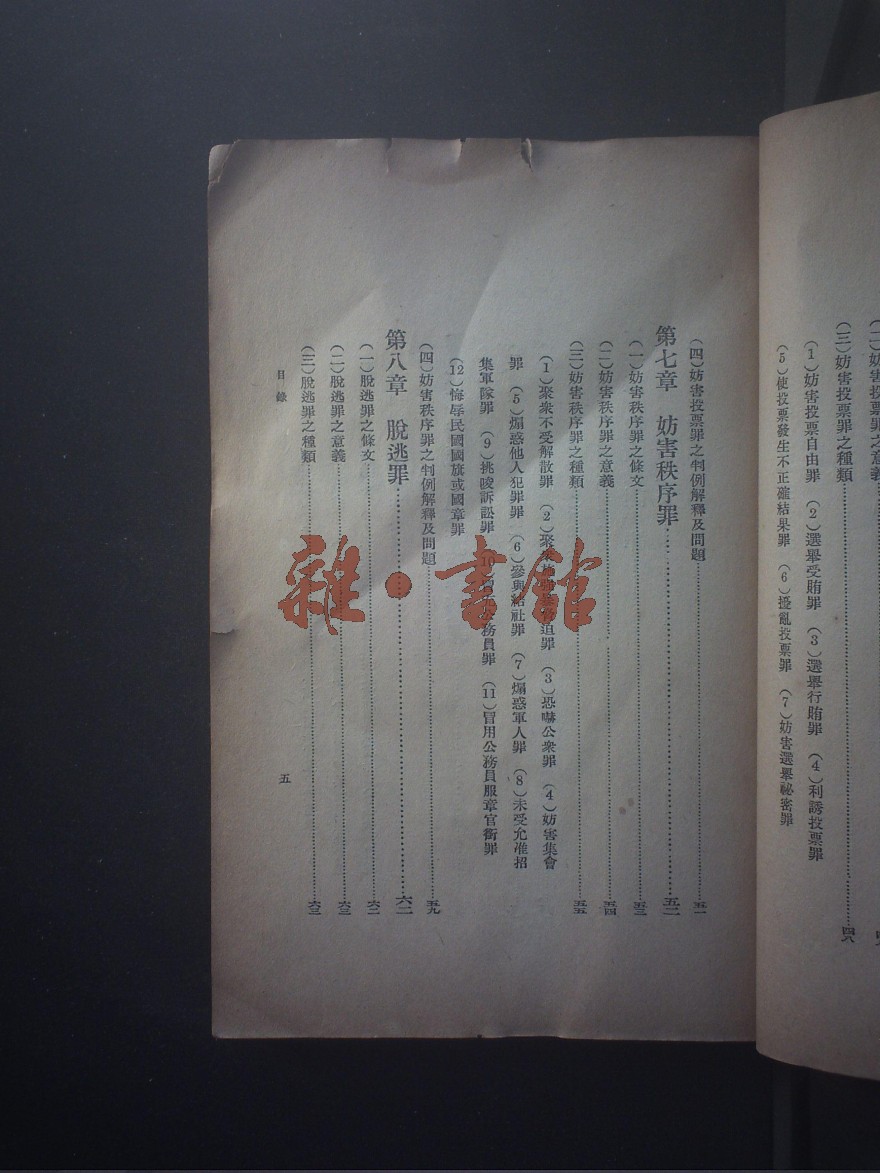 (三)妨害投票罪之種類……四六
(1)妨害投票自由罪 (2)選舉受賄罪 (3)選舉行賄罪 (4)利誘投票罪
(5)使投票發生不正確結果罪 (6)擾亂投票罪 (7)妨害選舉祕密罪
(四)妨害投票罪之判例解釋及問題……五一
第七章 妨害秩序罪……五二
(一)妨害秩序罪之條文……五三
(二)妨害秩序罪之意義……五四
(三)妨害秩序罪之種類……五五
(1)聚衆不受解散罪 (2)聚衆 迫罪 (3)恐嚇公衆罪 (4)妨害集會
罪 (5)煽惑他人犯罪罪 (6)參與結社罪 (7)煽惑軍人罪 (8)未受允准招
集軍隊罪 (9)挑唆訴訟罪 (10) 公務員罪 (11)冒用公務員服章官銜罪
(12)侮辱民國國旗或國章罪
(四)妨害秩序罪之判例解釋及問題……五九
第八章 脫逃罪……六二
(一)脫逃罪之條文……六二
(二)脫逃罪之意義……六三
(三)脫逃罪之種類……六三
目錄
五
雜·書館